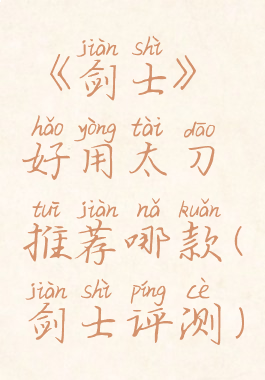 jiàn shì
《剑士》
hǎo yòng tài dāo
好用太刀
tuī jiàn nǎ kuǎn
推荐哪款(
jiàn shì píng cè
剑士评测)